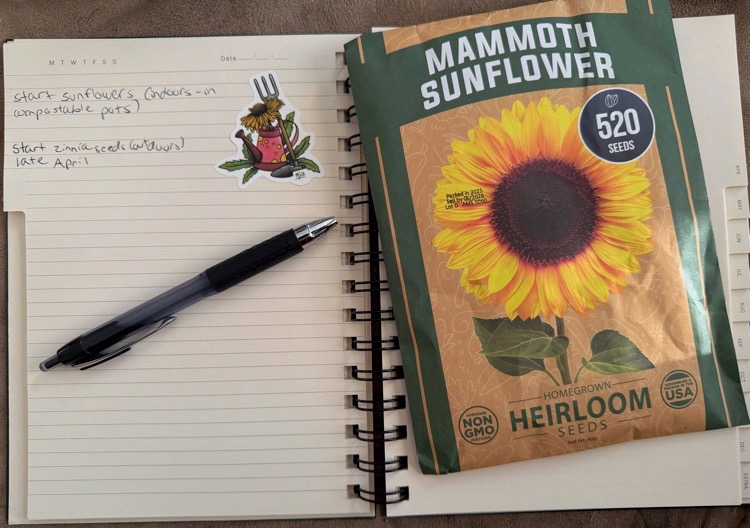 M T W T F S S
Date
start sunflowers (indoors - in
compostable pots)
start zinnia seeds (outdoors)
late April
MAMMOTH
SUNFLOWER
520
SEEDS
Packed in 2025
Sell by 06/2026
HOMEGROWN
HEIRLOOM
SEEDS
NON
GMO
USA
APR
MAY
JUN
JUL
AUG
SEP
OCT
DEC
EXTRA